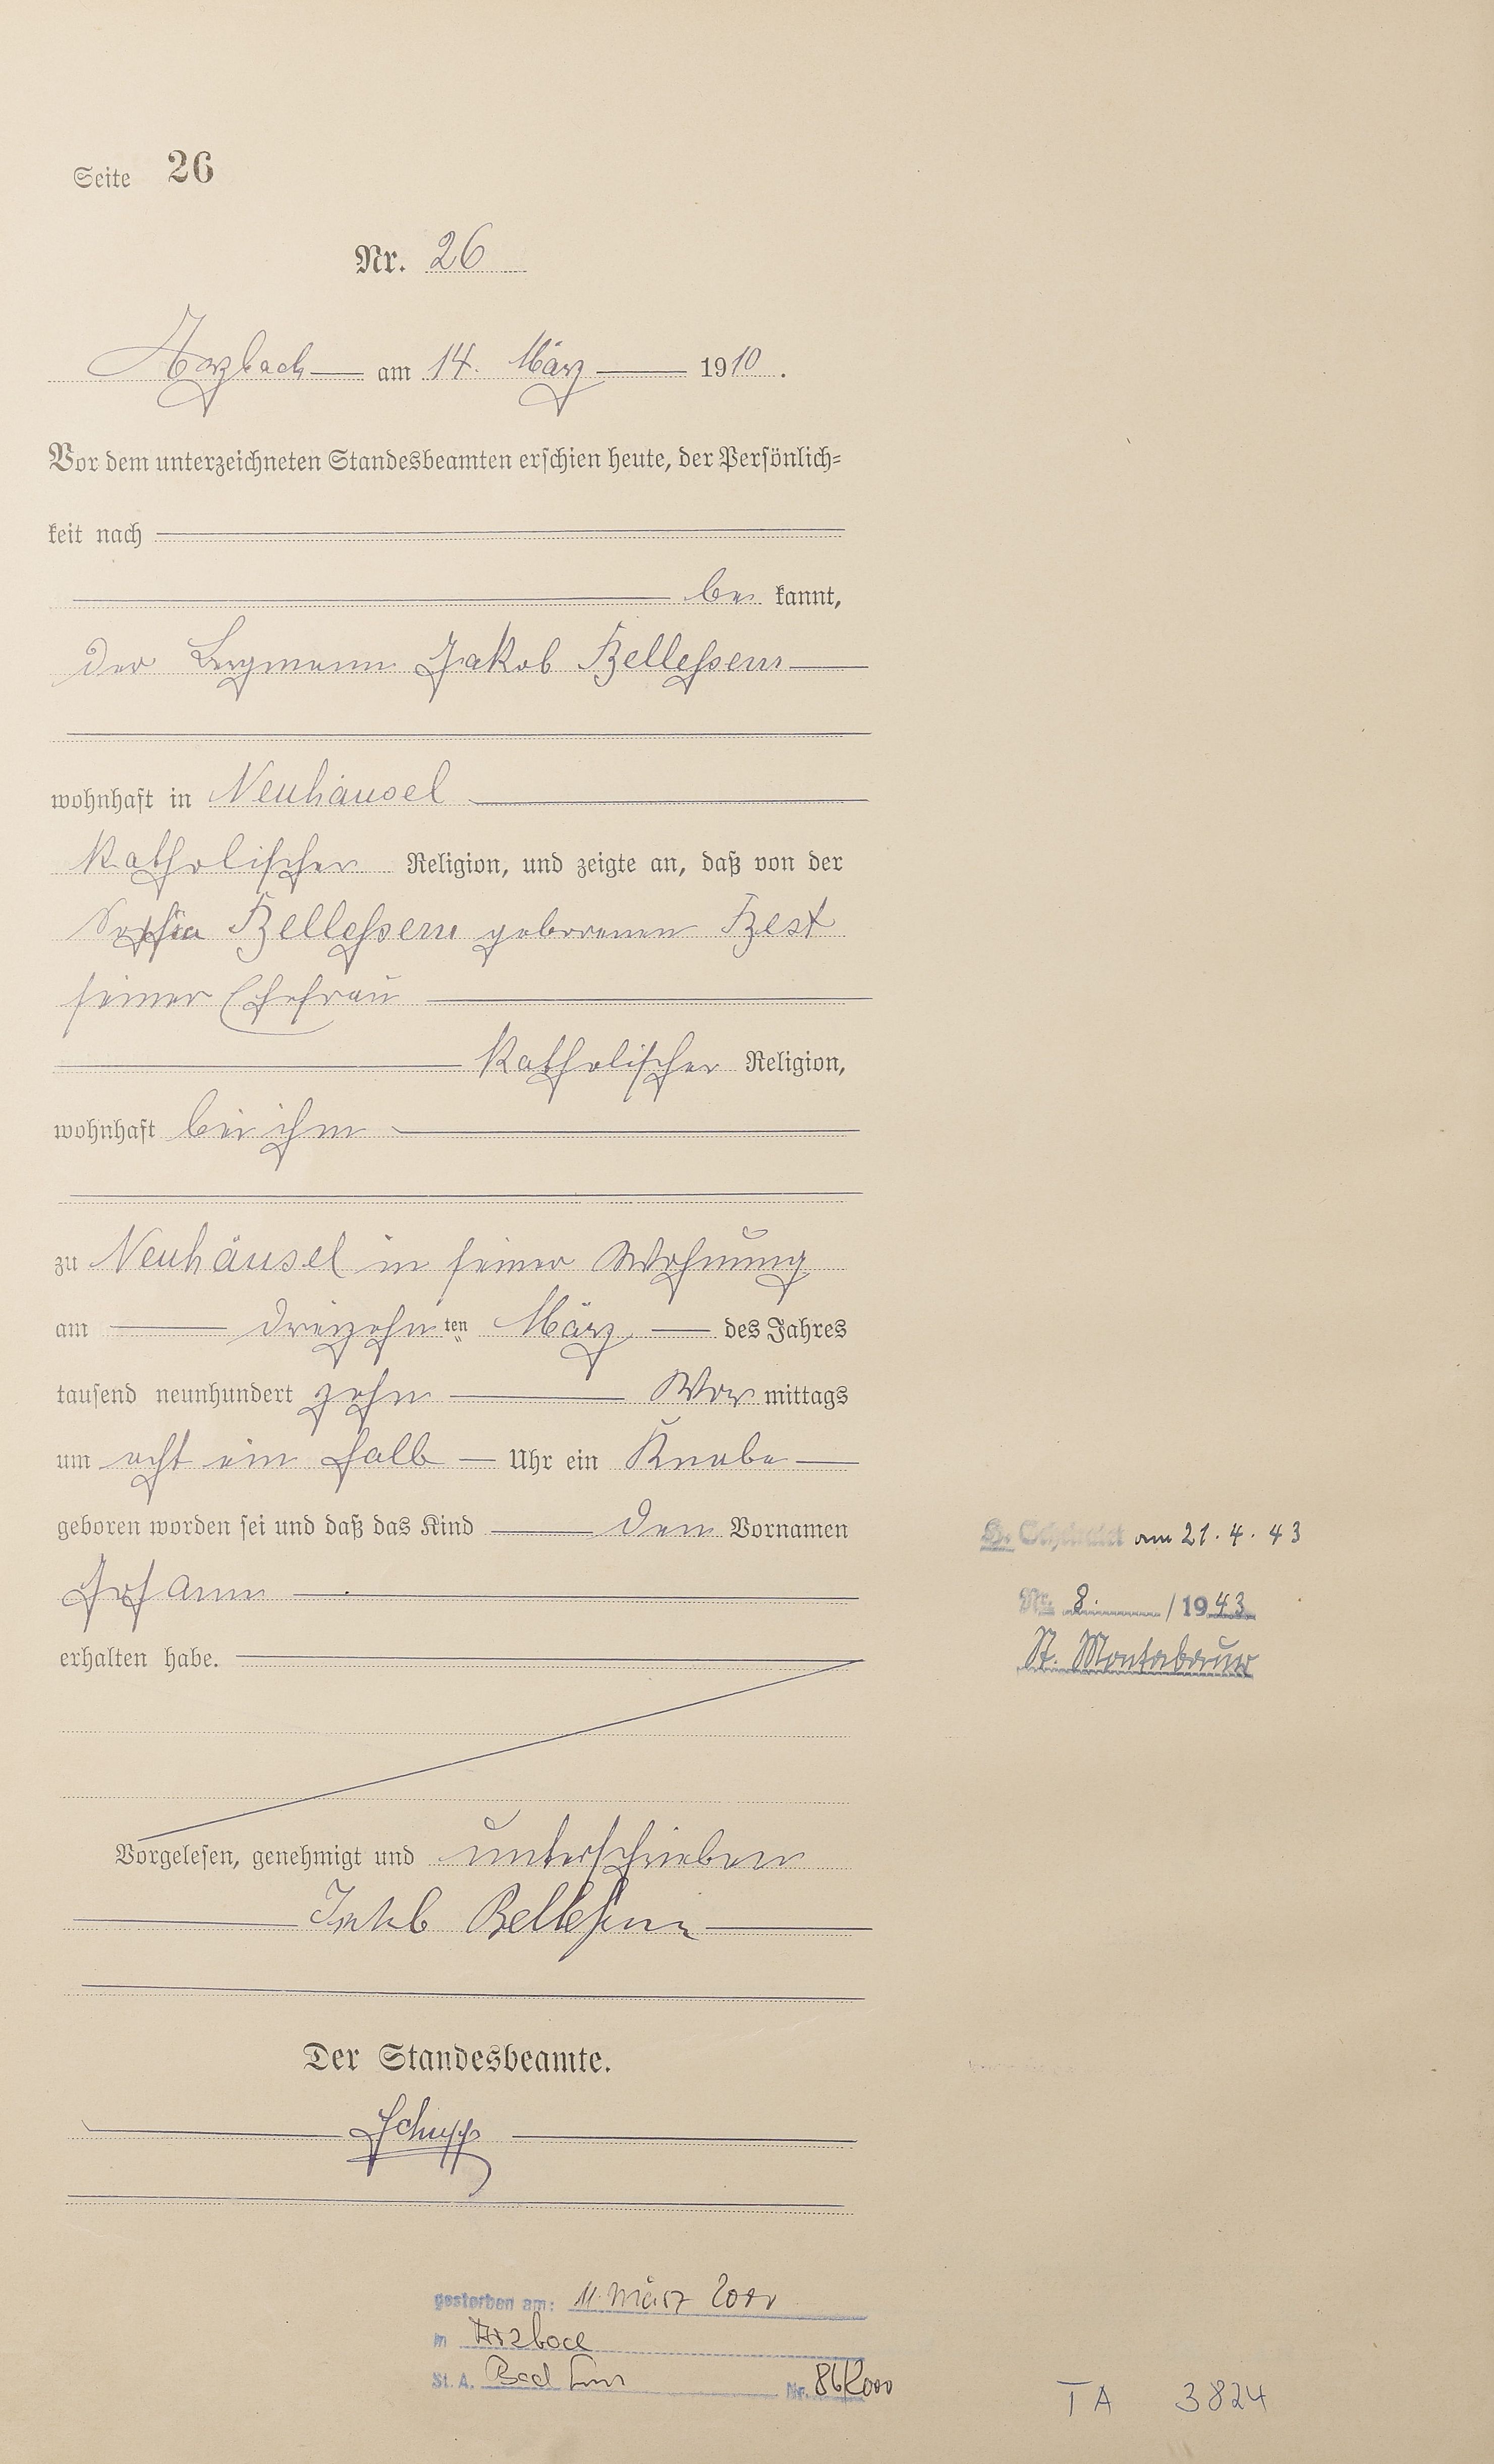 Seite 26
Nr. 26
Arzbach am 14. März 1910.
Vor dem unterzeichneten Standesbeamten erschien heute, der Persönlich-
keit nach
be kannt,
der Bergmann Jakob Bellesheim
wohnhaft in Neuhäusel
katholischer Religion, und zeigte an, daß von der
Sophia Bellesheim geborenen Best
seiner Ehefrau
katholischer Religion,
wohnhaft bei ihm
zu Neuhäusel in seiner Wohnung
am dreizehnten März des Jahres
tausend neunhundert zehn Vor mittags
um acht ein halb Uhr ein Knabe
geboren worden sei und daß das Kind den Vornamen
Johann
erhalten habe.
Vorgelesen, genehmigt und unterschrieben
Jakob
Der Standesbeamte.
Schupp
am 21. 4. 43
Nr. 8. / 1943
St. Montabaur
gestorben am: 11. März 2000
in Arzbach
St. A. Bad Ems Nr. 86/2000
TA 3824